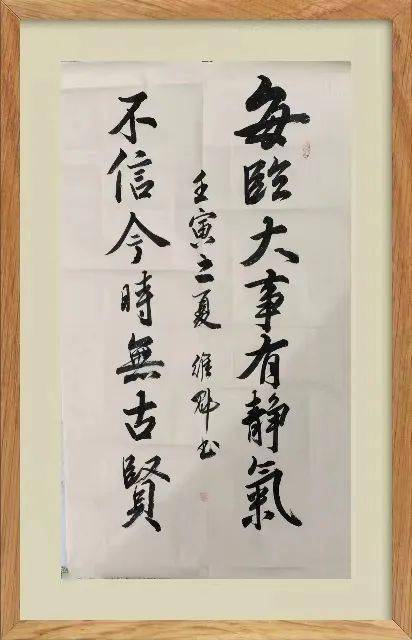 每臨大事有静氣
不信今時無古賢
壬寅之夏 維魁书